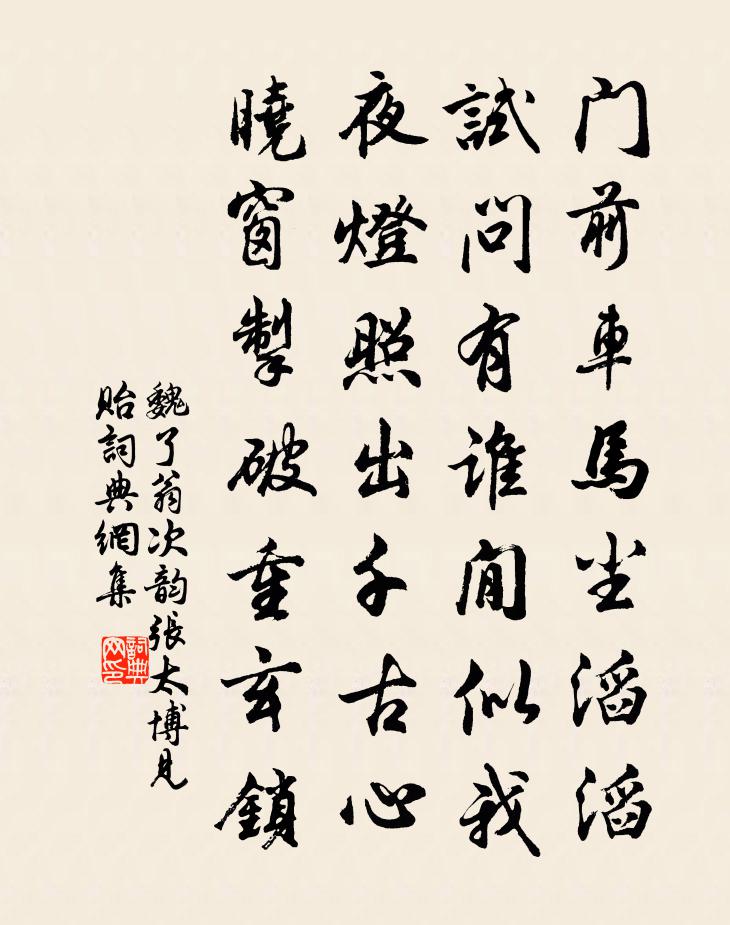 门前車馬尘滔滔
試问有谁閒似我
夜燈照出千古心
曉窗掣破重玄鎖
魏了翁次韵張太博見
貽詞典網集
詞典网印